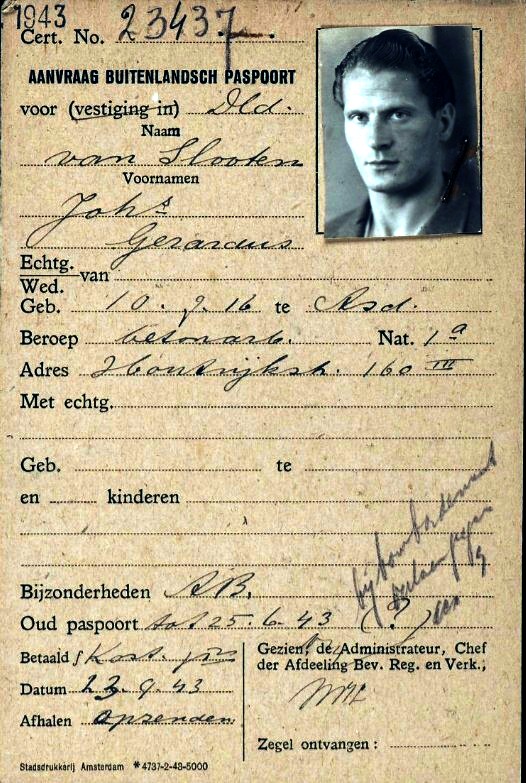 1943
Cert. No. 23437
AANVRAAG BUITENLANDSCH PASPOORT
voor (vestiging in) Dld.
Naam
van Slooten
Voornamen
Johs
Gerardus
Echtg.
Wed. van
Geb. 10. 9. 16 te Asd.
Beroep betonarb. Nat. 1a
Adres Houtrijkstr. 160 III
Met echtg.
Geb. te
en kinderen
bij bombardement
Bijzonderheden AB.
Oud paspoort tot 25.6.43 (?)
Betaald f Kost.
Gezien, de Administrateur, Chef
der Afdeeling Bev. Reg. en Verk.,
Datum 23.9.43
Afhalen opzenden
Zegel ontvangen:
Stadsdrukkerij Amsterdam *4737-2-43-5000